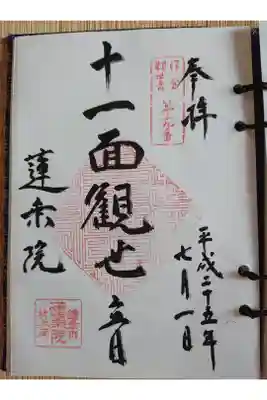 奉拝
平成二十五年
七月一日
十一面観世音
蓮乗院